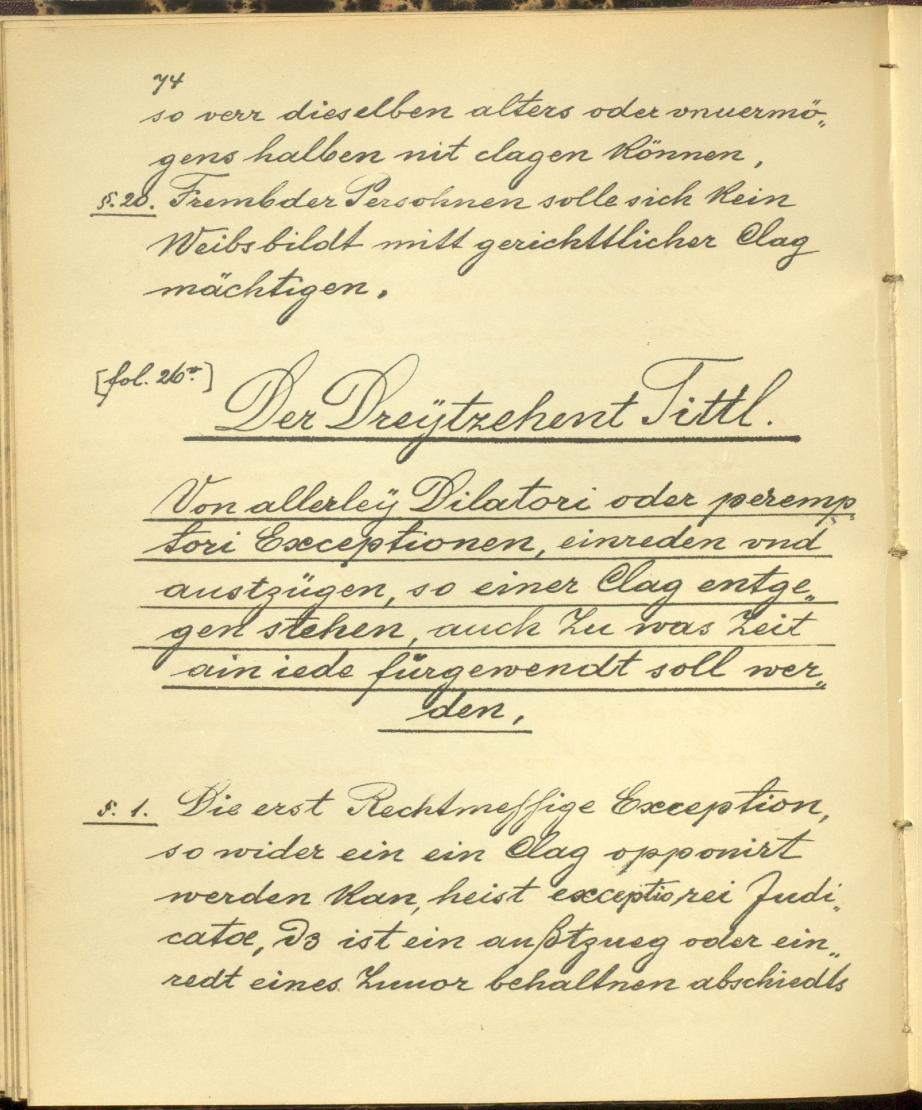 74
so verr dieselben alters oder vnuermö„
gens halben nit clagen können,
§. 20. Frembder Persohnen solle sich kein
Weibsbildt mitt gerichttlicher Clag
mächtigen.
[fol. 26v.]
Der Dreÿtzehent Tittl.
Von allerleÿ Dilatori oder peremp„
tori Exceptionen, einreden vnd
austzügen, so einer Clag entge„
gen stehen, auch Zu was Zeit
ain iede fürgewendt soll wer„
den,
§. 1. Die erst Rechtmessige Exception,
so wider ein ein Clag opponirt
werden kan, heist exceptio rei Judi„
catæ, Dz ist ein außtzueg oder ein„
redt eines Zuuor behaltnen abschiedts